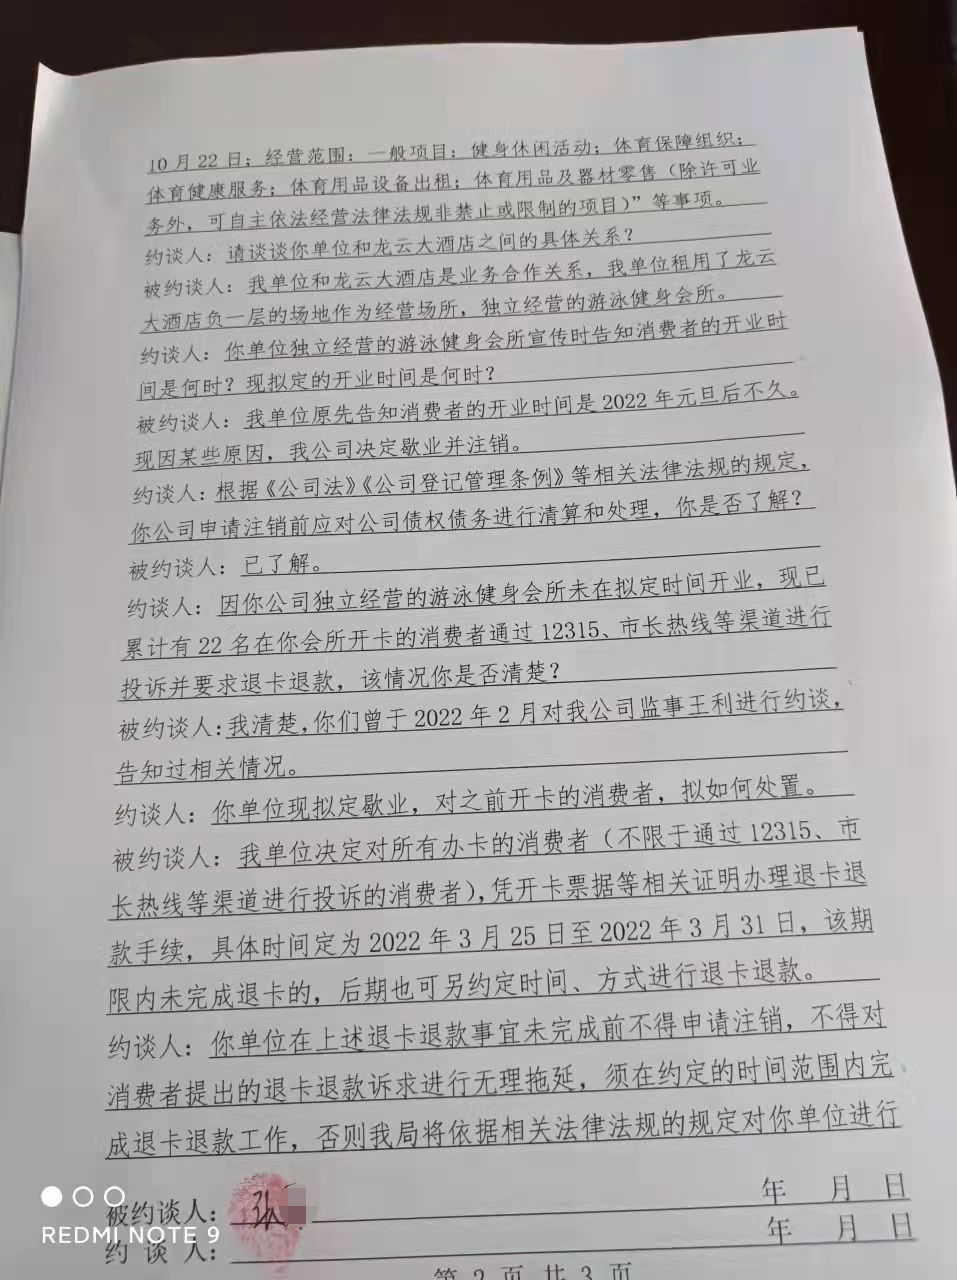 10月22日；经营范围：一般项目：健身休闲活动；体育保障组织；
体育健康服务；体育用品设备出租；体育用品及器材零售（除许可业
务外，可自主依法经营法律法规非禁止或限制的项目）”等事项。
约谈人：请谈谈你单位和龙云大酒店之间的具体关系？
被约谈人：我单位和龙云大酒店是业务合作关系，我单位租用了龙云
大酒店负一层的场地作为经营场所，独立经营的游泳健身会所。
约谈人：你单位独立经营的游泳健身会所宣传时告知消费者的开业时
间是何时？现拟定的开业时间是何时？
被约谈人：我单位原先告知消费者的开业时间是2022年元旦后不久。
现因某些原因，我公司决定歇业并注销。
约谈人：根据《公司法》《公司登记管理条例》等相关法律法规的规定，
你公司申请注销前应对公司债权债务进行清算和处理，你是否了解？
被约谈人：已了解。
约谈人：因你公司独立经营的游泳健身会所未在拟定时间开业，现已
累计有22名在你会所开卡的消费者通过12315、市长热线等渠道进行
投诉并要求退卡退款，该情况你是否清楚？
被约谈人：我清楚，你们曾于2022年2月对我公司监事王利进行约谈，
告知过相关情况。
约谈人：你单位现拟定歇业，对之前开卡的消费者，拟如何处置。
被约谈人：我单位决定对所有办卡的消费者（不限于通过12315、市
长热线等渠道进行投诉的消费者），凭开卡票据等相关证明办理退卡退
款手续，具体时间定为2022年3月25日至2022年3月31日，该期
限内未完成退卡的，后期也可另约定时间、方式进行退卡退款。
约谈人：你单位在上述退卡退款事宜未完成前不得申请注销，不得对
消费者提出的退卡退款诉求进行无理拖延，须在约定的时间范围内完
成退卡退款工作，否则我局将依据相关法律法规的规定对你单位进行
被约谈人： 年 月 日
约 谈 人： 年 月 日
第 2 页 共 3 页
REDMI NOTE 9